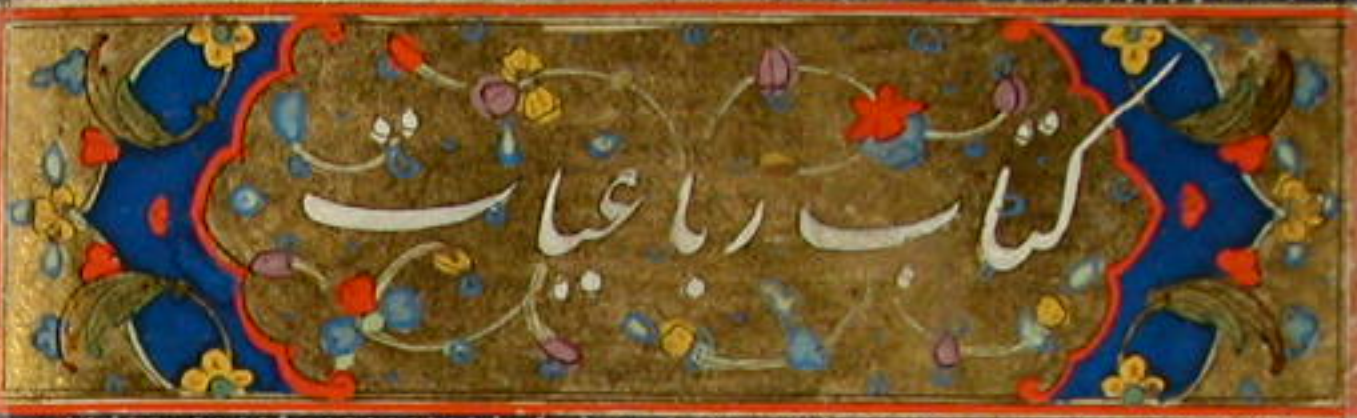 کتاب رباعیات